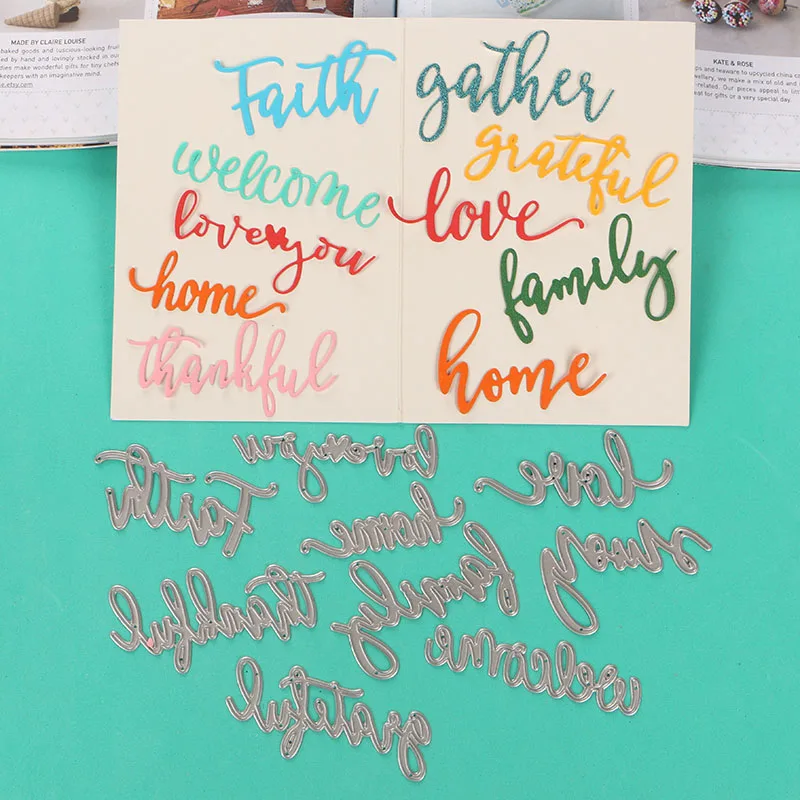 MADE BY CLAIRE LOUISE
baked goods and luscious-looking fruit
by hand and lovingly stocked in
make wonderful gifts for tiny chefs
keepers with an imaginative mind.
.etsy.com
KATE & ROSE
and teaware to upcycled china
we make a mix of old and
-related. Our pieces appeal to
for gifts or a very special day.
Faith
welcome
love you
home
thankful
gather
grateful
love
family
home
love you
Faith
love
home
home
thankful
family
welcome
grateful